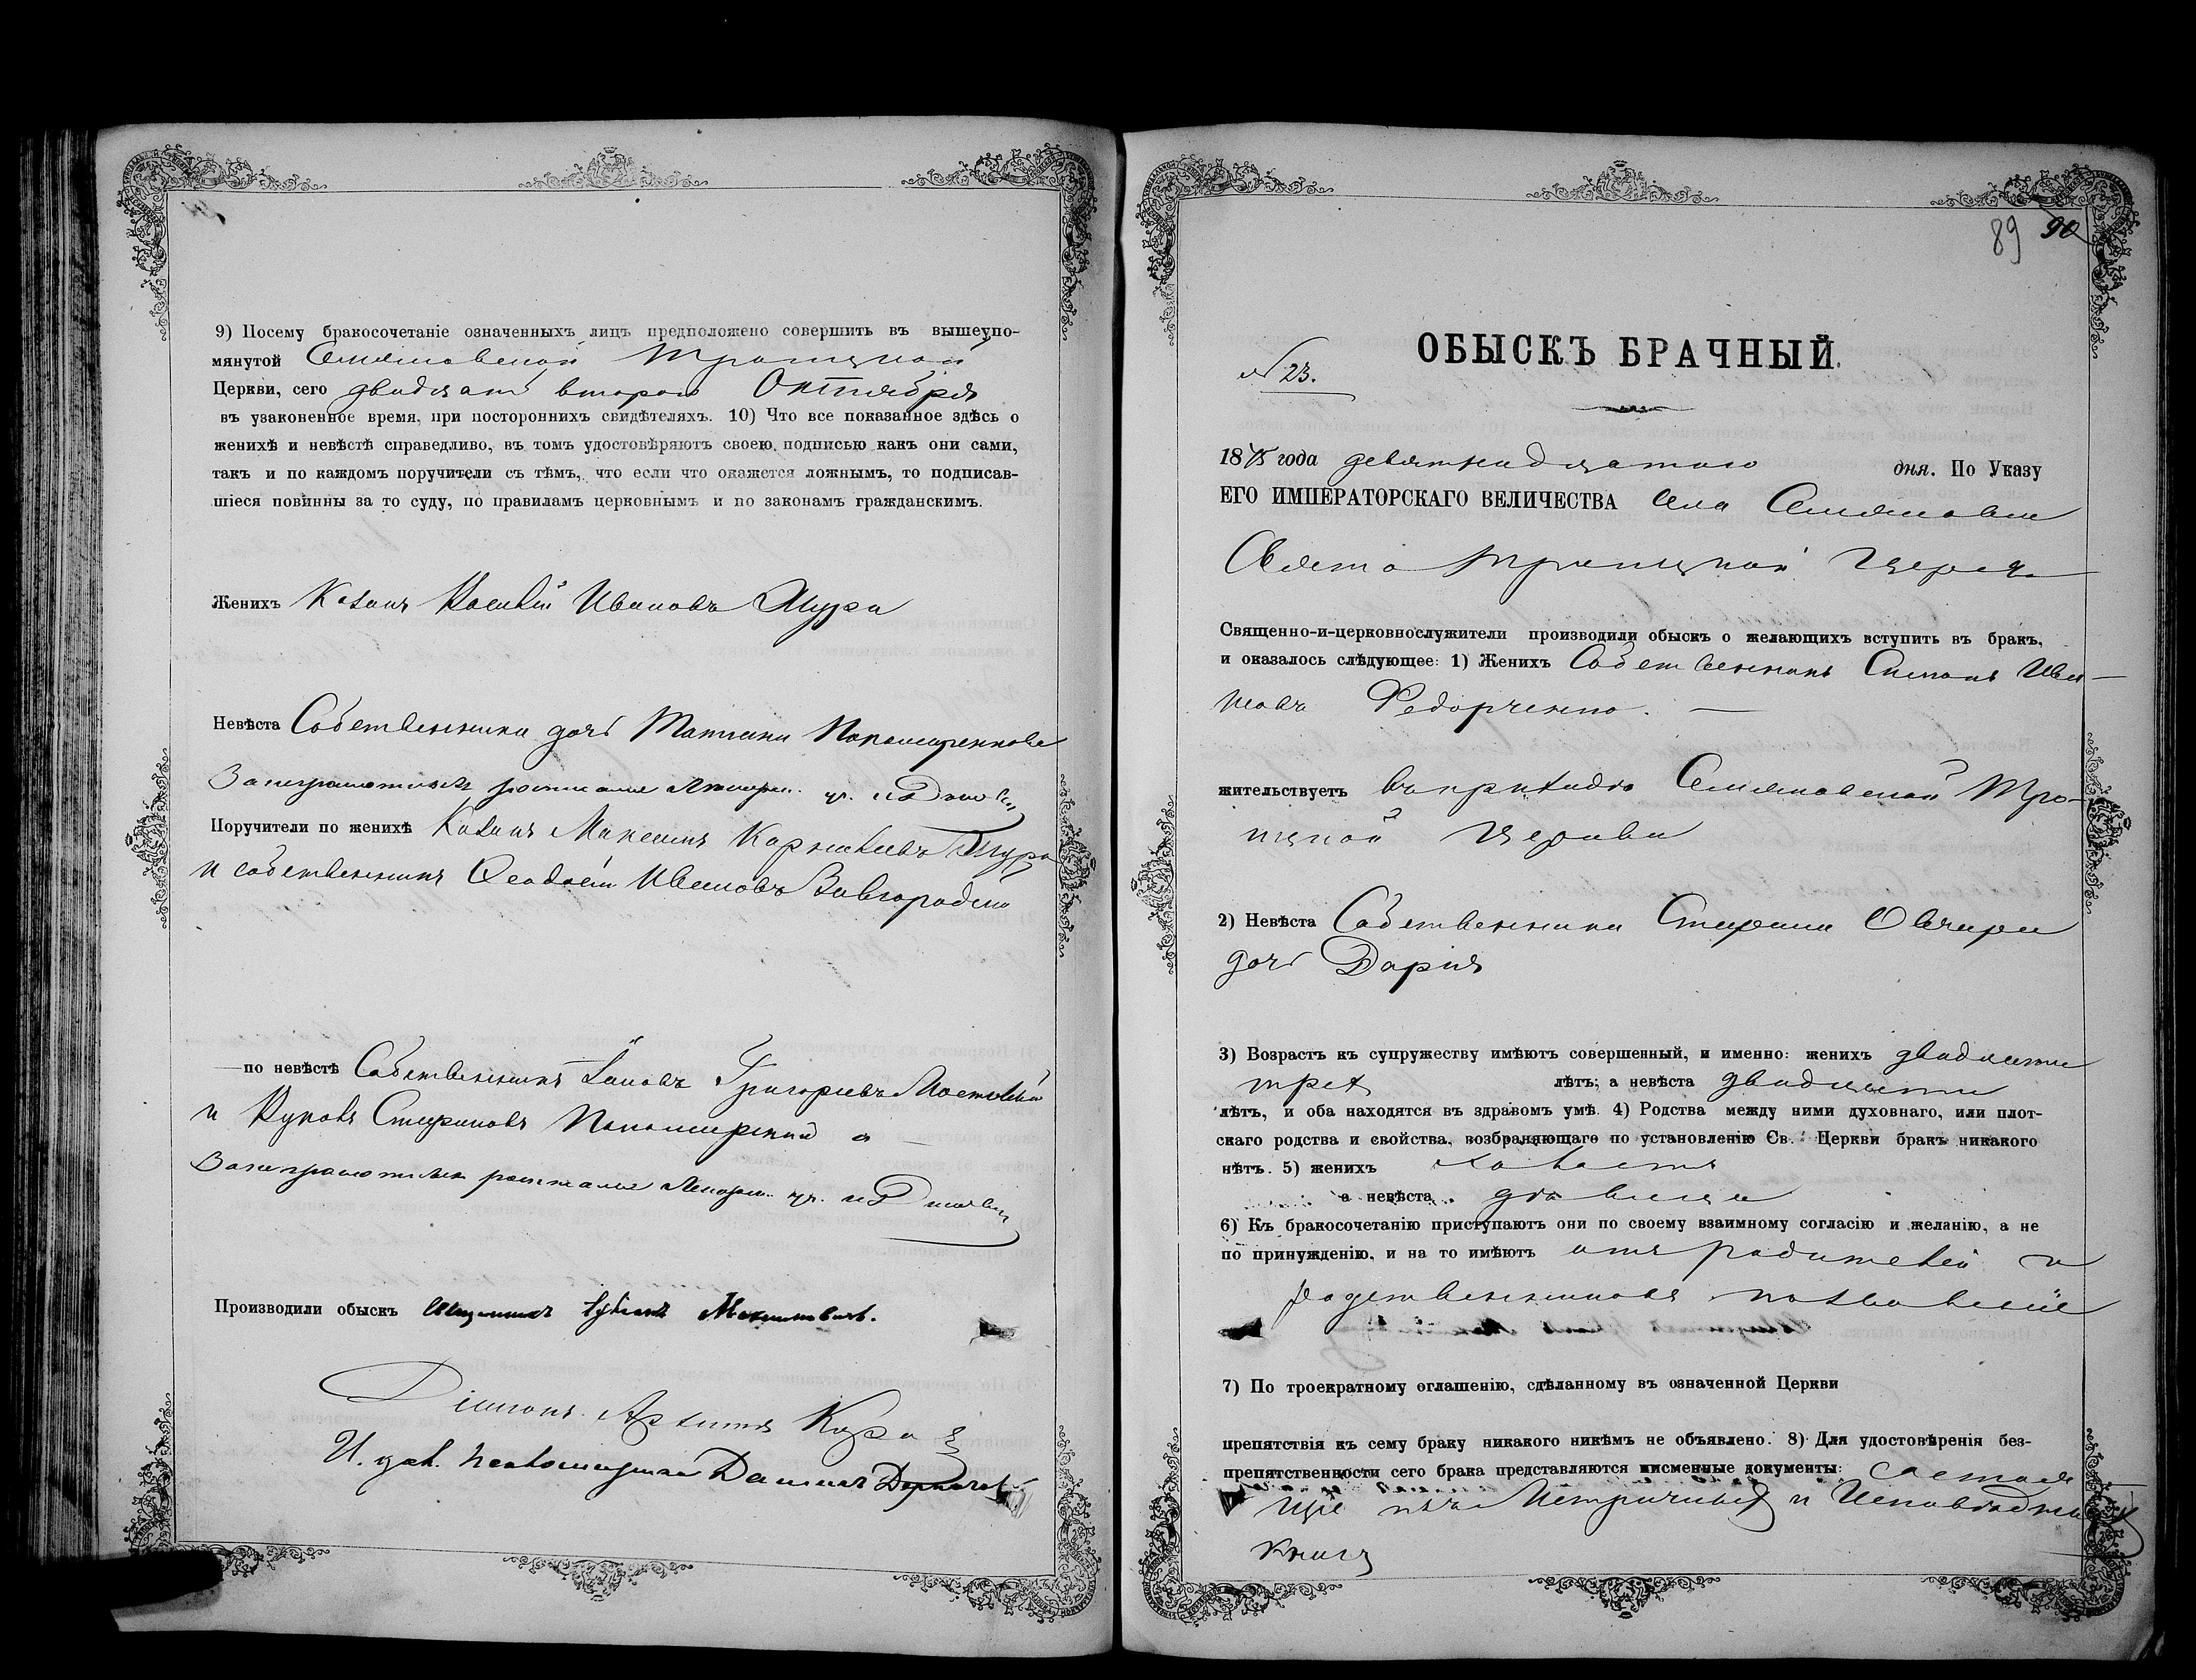 9) Посему бракосочетаніе означенныхъ лицъ предположено совершить въ вышеупо-
мянутой Семяновской Троицкой
Церкви, сего двадцать второго Октября
въ узаконенное время, при постороннихъ свидѣтеляхъ. 10) Что все показанное здѣсь о
женихѣ и невѣстѣ справедливо, въ томъ удостовѣряютъ своею подписью какъ они сами,
такъ и по каждомъ поручители съ тѣмъ, что если что окажется ложнымъ, то подписав-
шіеся повинны за то суду, по правиламъ церковнымъ и по законамъ гражданскимъ.
Женихъ Козакъ Ивановъ
Невѣста Собственника дочь
За неграмотныхъ росписался
Поручители по женихѣ Козакъ Максимъ
и собственникъ Феодосій Ивановъ Завгородній
по невѣстѣ Собственникъ Григорьевъ
и Стефановъ
За неграмотныхъ росписался
Производили обыскъ Священникъ
Діаконъ
И. дол. псаломщика
89 90
ОБЫСКЪ БРАЧНЫЙ.
№ 23.
1875 года девятнадцатого дня. По Указу
ЕГО ИМПЕРАТОРСКАГО ВЕЛИЧЕСТВА села Семяновки
Свято Троицкой Церкви
Священно-и-церковнослужители производили обыскъ о желающихъ вступить въ бракъ,
и оказалось слѣдующее: 1) Женихъ Собственникъ Ива-
новъ Федорченко.
жительствуетъ въ приходѣ Семяновской Тро-
ицкой Церкви
2) Невѣста Собственника Стефана Овчара
дочь Дарія
3) Возрастъ къ супружеству имѣютъ совершенный, и именно: женихъ двадцати
трех лѣтъ; а невѣста двадцати
лѣтъ, и оба находятся въ здравомъ умѣ. 4) Родства между ними духовнаго, или плот-
скаго родства и свойства, возбраняющаго по установленію Св. Церкви бракъ никакого
нѣтъ. 5) женихъ холостъ
а невѣста дѣвица
6) Къ бракосочетанію приступаютъ они по своему взаимному согласію и желанію, а не
по принужденію, и на то имѣютъ отъ родителей и
родственниковъ позволеніе
7) По троекратному оглашенію, сдѣланному въ означенной Церкви
препятствія къ сему браку никакого никѣмъ не объявлено. 8) Для удостовѣренія без-
препятственности сего брака представляются письменные документы: состоя
щіе изъ Метричныхъ и Исповѣдныхъ
книгъ